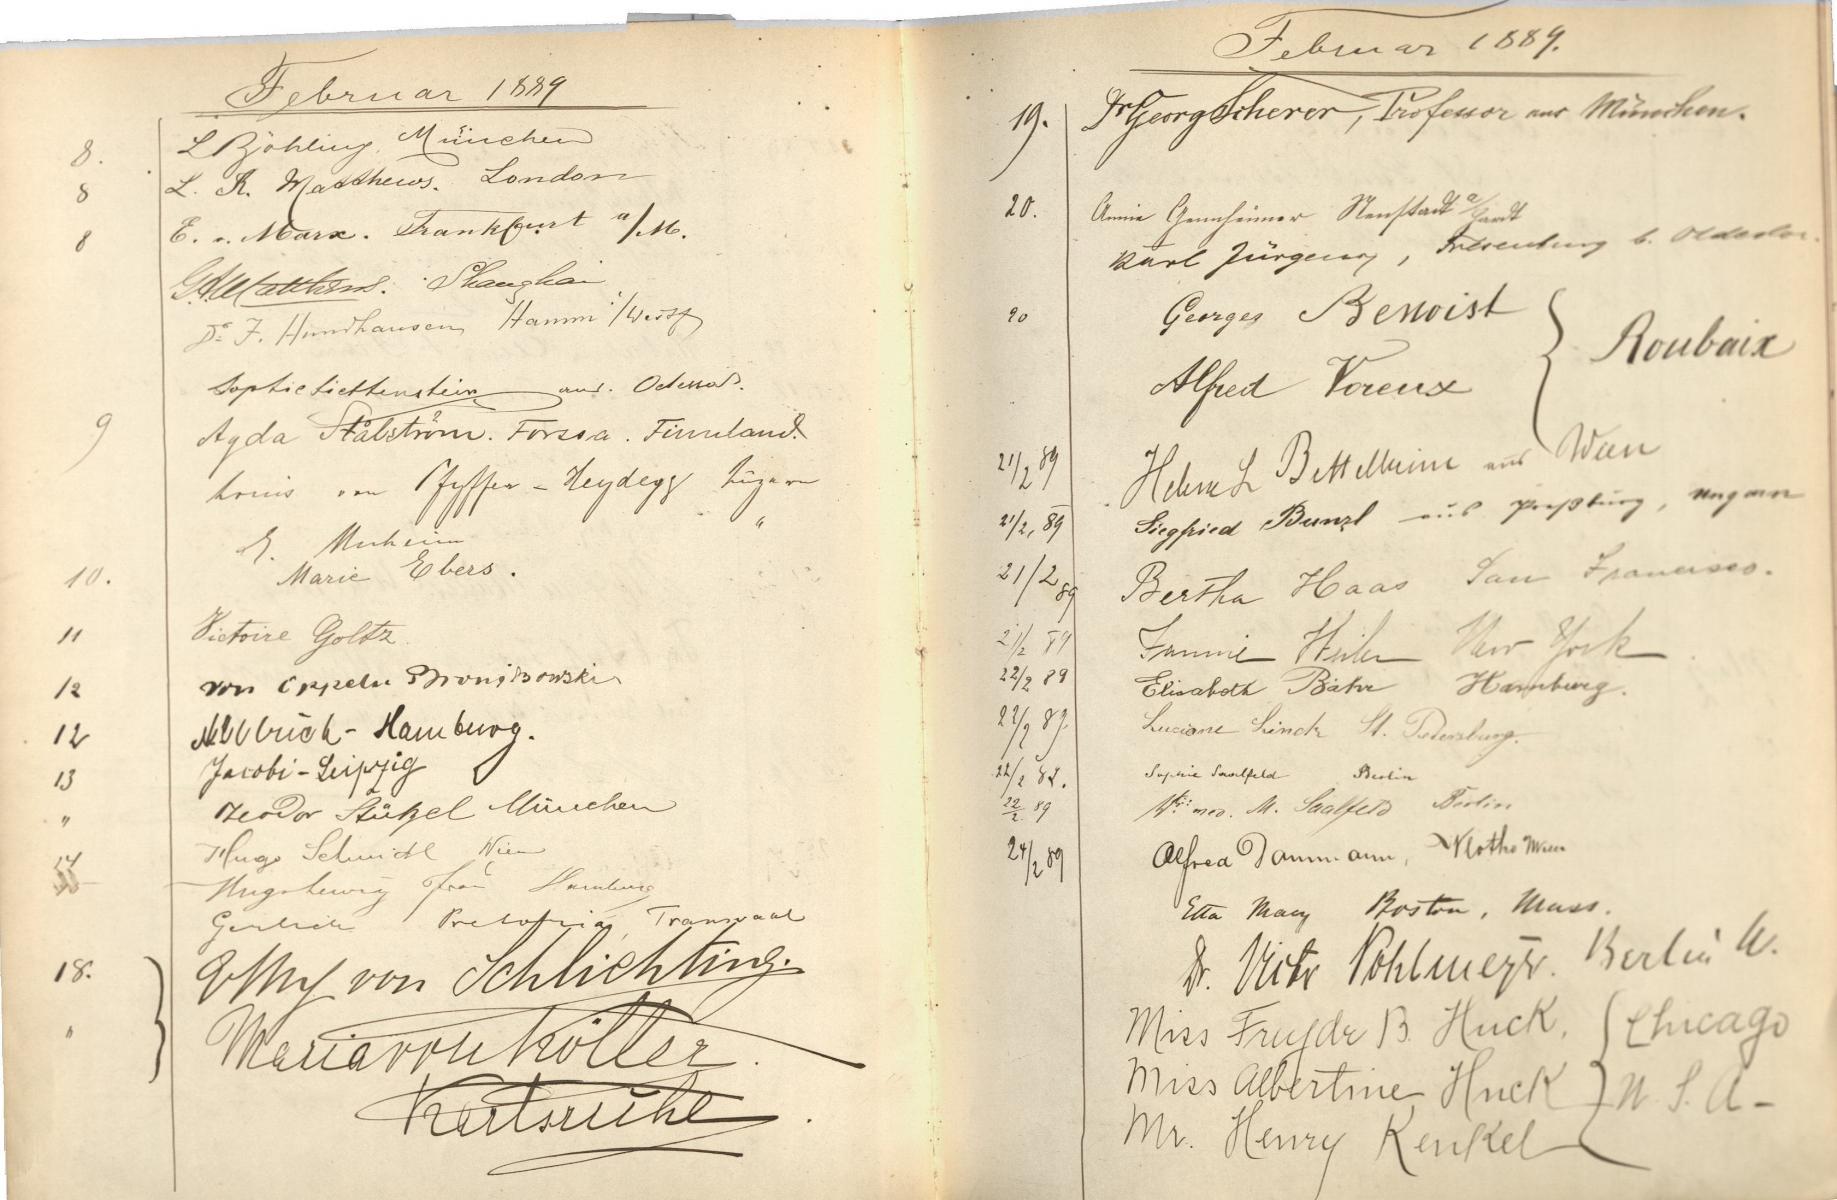 Februar 1889
8. L Böhling, München
8 L. R. Matthews. London
8 E. v. Marx. Frankfurt a/M.
G.A. Matthews. Shanghai
Dr F. Hundhausen, Hamm i/Westf
Sophie Liechtenstein aus. Odessa.
9 Agda Stålström. Forssa. Finnland.
Louis von Pfyffer-Heydegg Luzern
E. Muheim "
10. Marie Ebers.
11 Victoire Goltz
12 von Oppeln Bronikowski
12 Allbrich - Hamburg.
13 Jacobi - Leipzig
" Teodor Stützel München
14 Hugo Schmidl Wien
Frau Hamburg
Gerlich Pretoria, Transvaal
18. von Schlichting.
" Maria von Köller.
Karlsruhe
Februar 1889.
19. Dr Georg Scherer, Professor aus München.
20. Annie Neustadt a/Haardt
Karl Jürgens, b.
20 Georges Benoist
Roubaix
Alfred Voreux
21/2 89 Helene L Bettelheim aus Wien
21/2, 89 Siegfried Bunzl aus Preßburg, Ungarn
21/2 89 Bertha Haas San Francisco.
21/2 89 Fannie New York
22/2 89 Elisabeth Bähr Hamburg.
22/2 89. Luciane Linck St. Petersburg.
22/2 89. Sophie Saalfeld Berlin
22/2 89 med. M. Saalfeld Berlin
24/2 89 Alfred Dammann, Vlotho
Etta Macy Boston, Mass.
Dr. Victor Pohlmeyer. Berlin W.
Miss Fryda B. Huck. Chicago
Miss Albertine Huck U. S. A-
Mr. Henry Kenkel